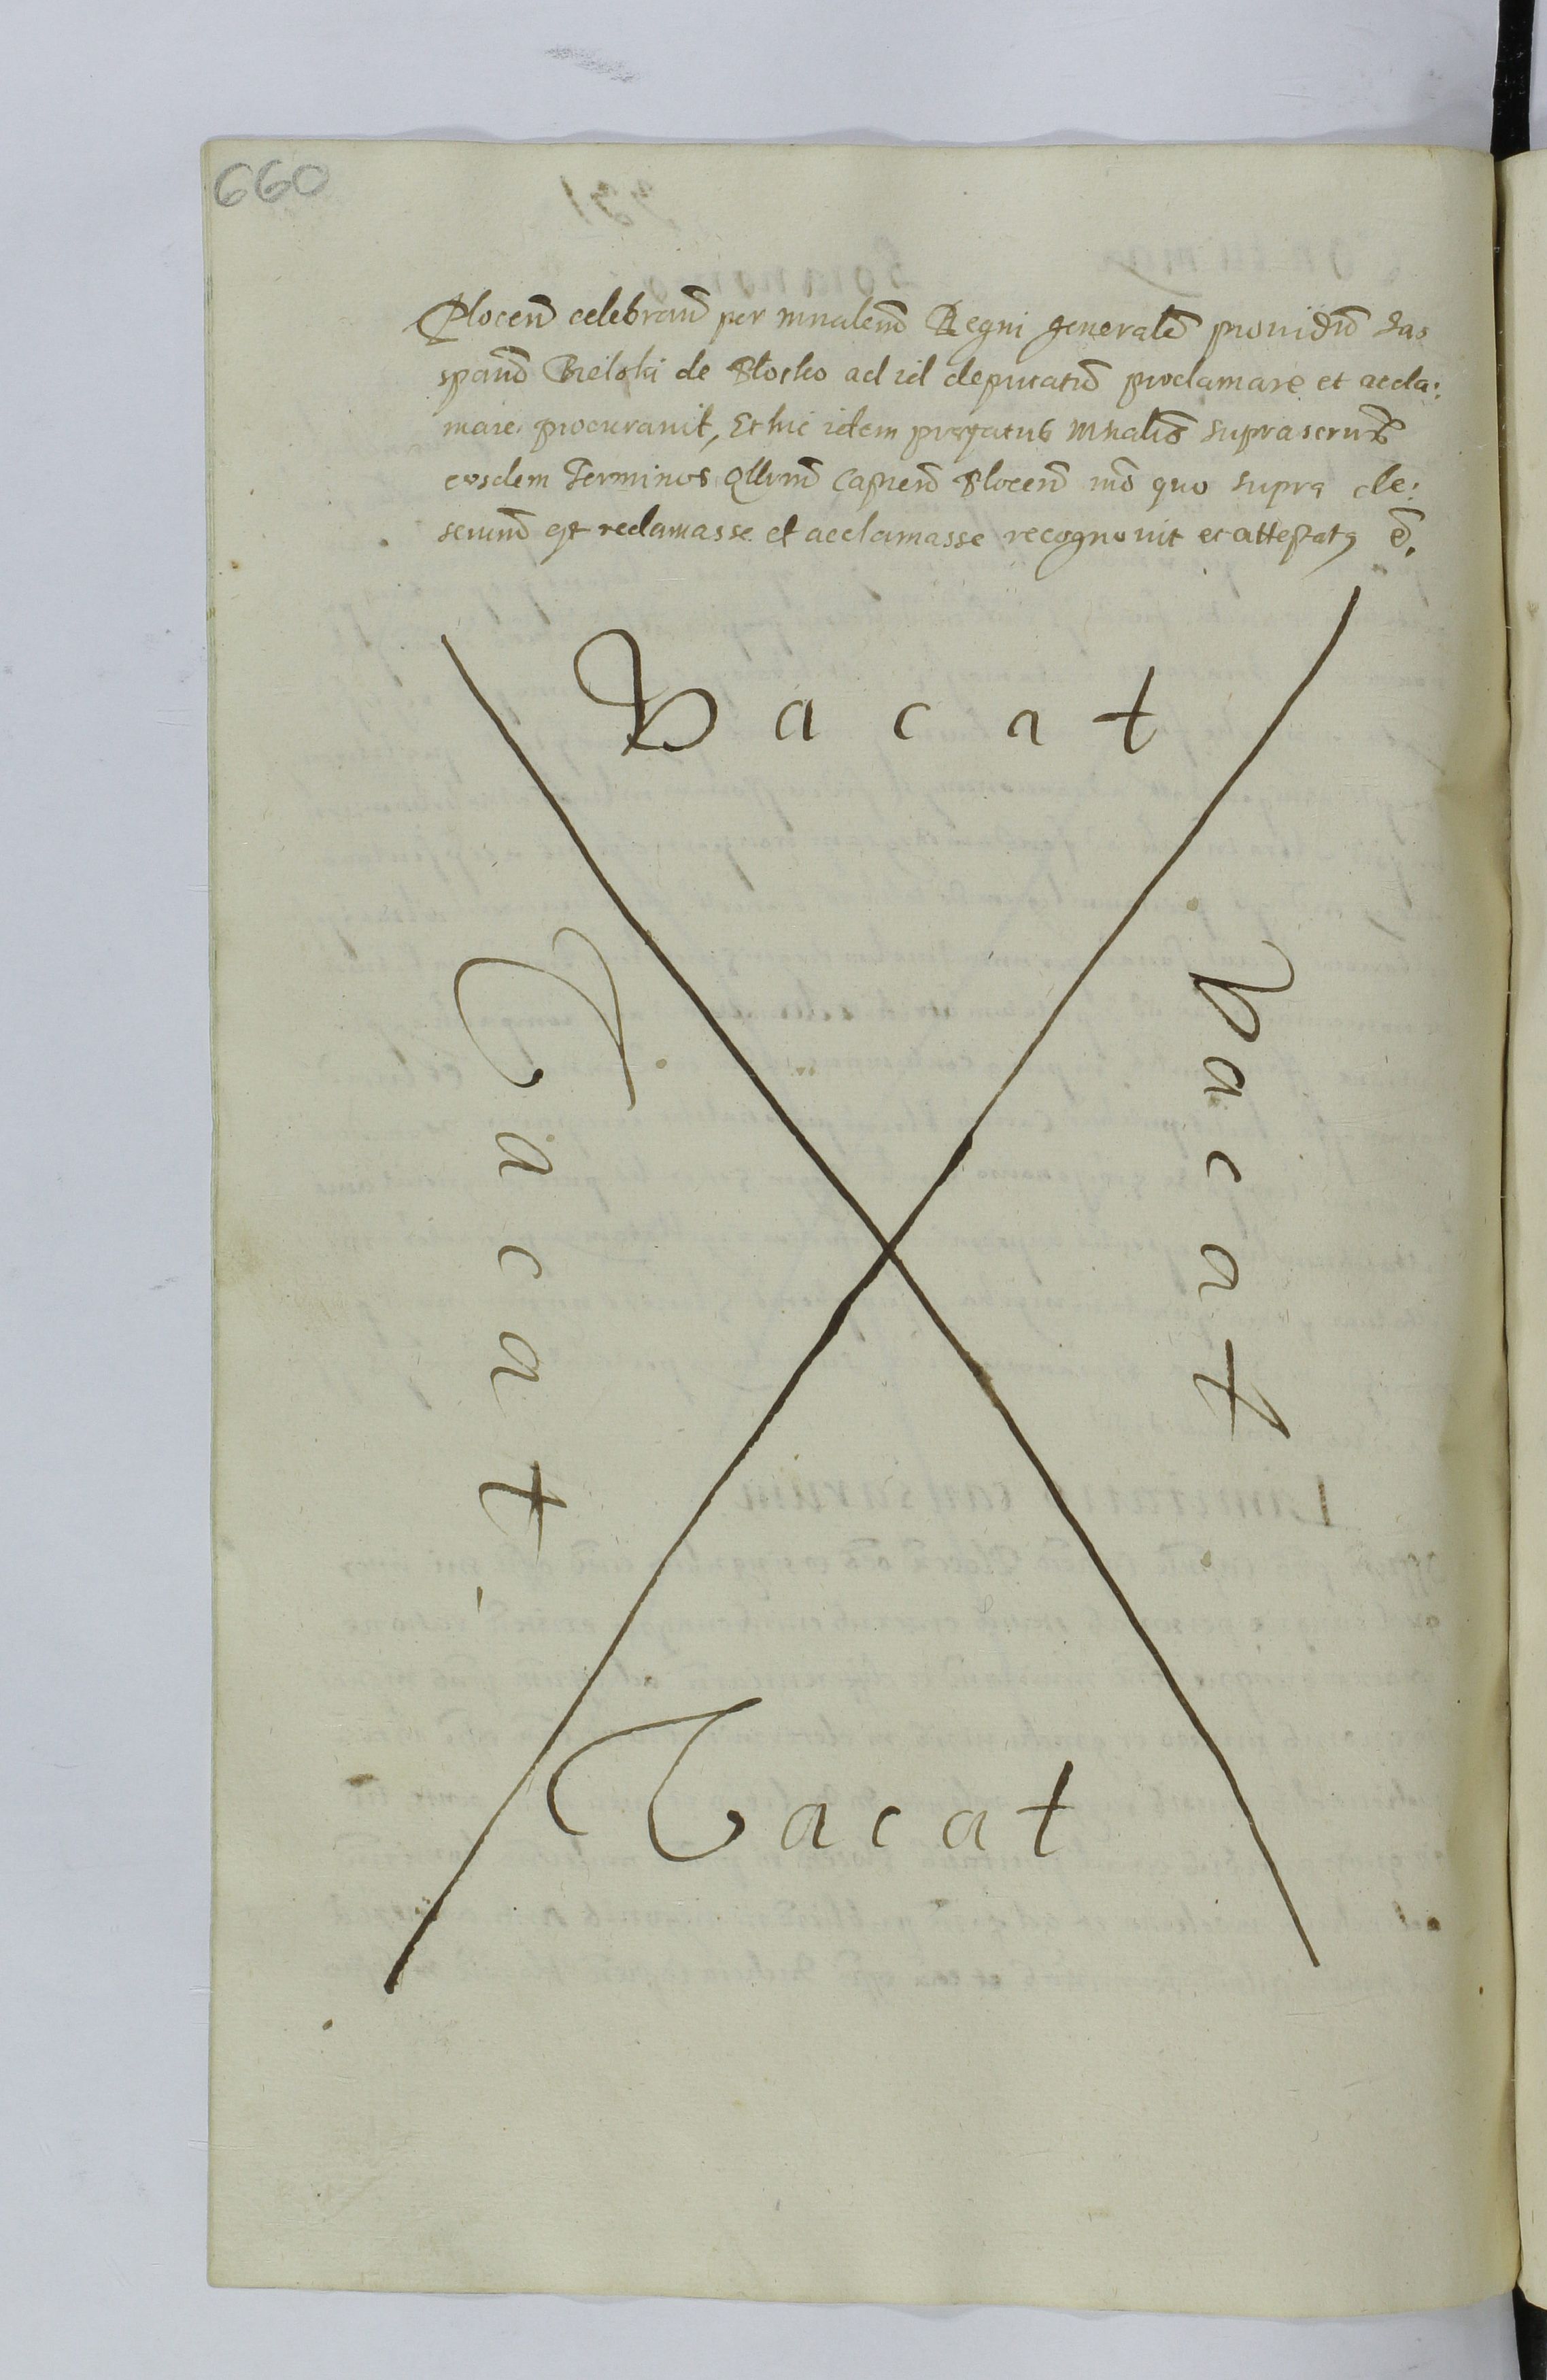 660
Plocen̄ celebran̄ per mnālem̄ Regni generalē prouidū Jas
spanū Bielski de Blosko ad id deputatū proclamare et accla:
mare procurauit, Et hic idem prefatus mnālis suprascrip̄t
eosdem Terminos Qllrum̄ Capnen̄ Plocen̄ mō quo supra de:
scriuū est reclamasse et acclamasse recognouit et attestatus ē.
Vacat
Vacat
Vacat
Vacat